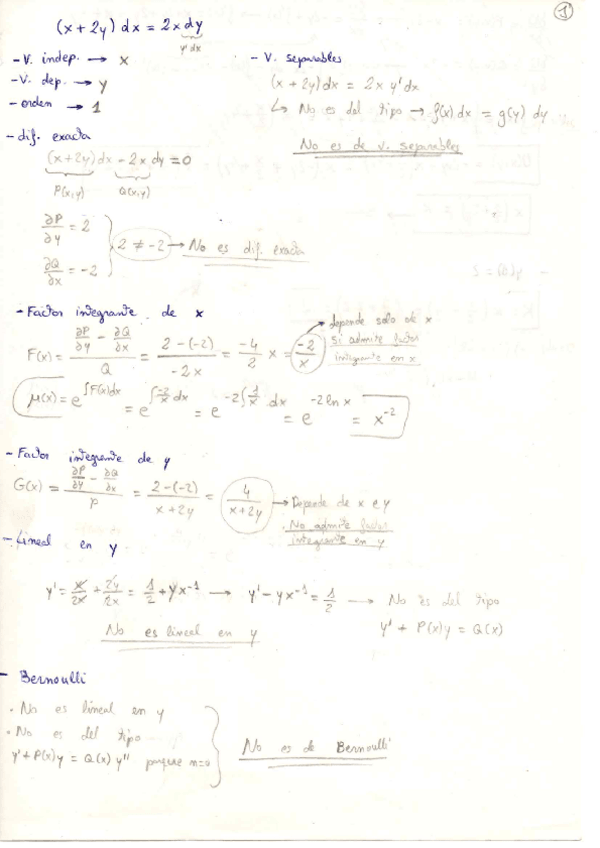 ①
(x + 2y) dx = 2x dy
y' dx
- V. indep. → x
- V. dep. → y
- orden → 1
- V. separables
(x + 2y) dx = 2x y' dx
↳ No es del tipo → f(x) dx = g(y) dy
No es de v. separables
- dif. exacta
(x+2y) dx - 2x dy = 0
P(x,y) Q(x,y)
∂P/∂y = 2
∂Q/∂x = -2
2 ≠ -2 → No es dif. exacta
- Factor integrante de x
F(x) = (∂P/∂y - ∂Q/∂x)/Q = (2-(-2))/(-2x) = -4/2 x = -2/x
depende solo de x
si admite factor
integrante en x
μ(x) = e^∫F(x)dx = e^∫-2/x dx = e^-2∫1/x dx = e^-2 ln x = x^-2
- Factor integrante de y
G(x) = (∂P/∂y - ∂Q/∂x)/P = (2-(-2))/(x+2y) = 4/(x+2y) → Depende de x e y
. No admite factor
integrante en y
- Lineal en y
y' = x/2x + 2y/2x = 1/2 + yx^-1 → y' - yx^-1 = 1/2 → No es del tipo
y' + P(x) y = Q(x)
No es lineal en y
- Bernoulli
. No es lineal en y
. No es del tipo
y' + P(x) y = Q(x) y^n porque n=0
No es de Bernoulli